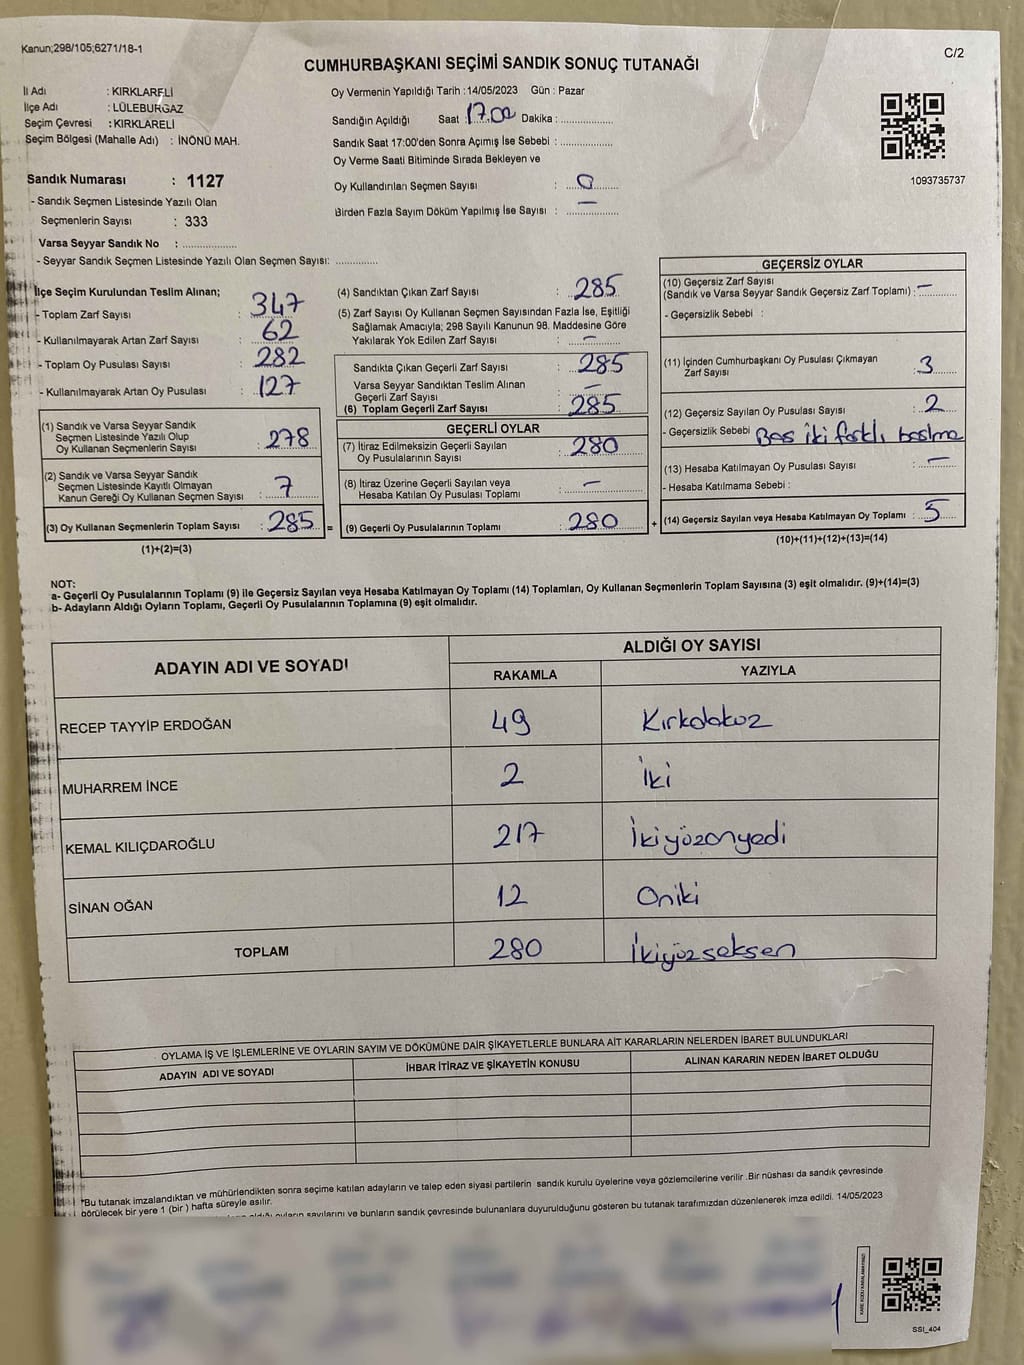 Kanun;298/105;6271/18-1
C/2
CUMHURBAŞKANI SEÇİMİ SANDIK SONUÇ TUTANAĞI
İl Adı : KIRKLARELİ
İlçe Adı : LÜLEBURGAZ
Seçim Çevresi : KIRKLARELİ
Seçim Bölgesi (Mahalle Adı) : İNÖNÜ MAH.
Sandık Numarası : 1127
- Sandık Seçmen Listesinde Yazılı Olan
Seçmenlerin Sayısı : 333
Varsa Seyyar Sandık No : ..............
- Seyyar Sandık Seçmen Listesinde Yazılı Olan Seçmen Sayısı: ............
Oy Vermenin Yapıldığı Tarih :14/05/2023 Gün : Pazar
Sandığın Açıldığı Saat : 17.00 Dakika : ..............
Sandık Saat 17:00'den Sonra Açımış İse Sebebi : ..............
Oy Verme Saati Bitiminde Sırada Bekleyen ve
Oy Kullandırılan Seçmen Sayısı : 0
Birden Fazla Sayım Döküm Yapılmış İse Sayısı : —
1093735737
İlçe Seçim Kurulundan Teslim Alınan;
- Toplam Zarf Sayısı : 347
- Kullanılmayarak Artan Zarf Sayısı : 62
- Toplam Oy Pusulası Sayısı : 282
- Kullanılmayarak Artan Oy Pusulası : 127
(1) Sandık ve Varsa Seyyar Sandık
Seçmen Listesinde Yazılı Olup
Oy Kullanan Seçmenlerin Sayısı : 278
(2) Sandık ve Varsa Seyyar Sandık
Seçmen Listesinde Kayıtlı Olmayan
Kanun Gereği Oy Kullanan Seçmen Sayısı : 7
(3) Oy Kullanan Seçmenlerin Toplam Sayısı : 285 =
(1)+(2)=(3)
(4) Sandıktan Çıkan Zarf Sayısı : 285
(5) Zarf Sayısı Oy Kullanan Seçmen Sayısından Fazla İse, Eşitliği
Sağlamak Amacıyla; 298 Sayılı Kanunun 98. Maddesine Göre
Yakılarak Yok Edilen Zarf Sayısı : —
Sandıkta Çıkan Geçerli Zarf Sayısı : 285
Varsa Seyyar Sandıktan Teslim Alınan
Geçerli Zarf Sayısı : —
(6) Toplam Geçerli Zarf Sayısı : 285
GEÇERLİ OYLAR
(7) İtiraz Edilmeksizin Geçerli Sayılan
Oy Pusulalarının Sayısı : 280
(8) İtiraz Üzerine Geçerli Sayılan veya
Hesaba Katılan Oy Pusulası Toplamı : —
(9) Geçerli Oy Pusulalarının Toplamı : 280 +
GEÇERSİZ OYLAR
(10) Geçersiz Zarf Sayısı
(Sandık ve Varsa Seyyar Sandık Geçersiz Zarf Toplamı) : —
- Geçersizlik Sebebi :
(11) İçinden Cumhurbaşkanı Oy Pusulası Çıkmayan
Zarf Sayısı : 3
(12) Geçersiz Sayılan Oy Pusulası Sayısı : 2
- Geçersizlik Sebebi Boş iki farklı basılma
(13) Hesaba Katılmayan Oy Pusulası Sayısı : —
- Hesaba Katılmama Sebebi :
(14) Geçersiz Sayılan veya Hesaba Katılmayan Oy Toplamı : 5
(10)+(11)+(12)+(13)=(14)
NOT:
a- Geçerli Oy Pusulalarının Toplamı (9) ile Geçersiz Sayılan veya Hesaba Katılmayan Oy Toplamı (14) Toplamları, Oy Kullanan Seçmenlerin Toplam Sayısına (3) eşit olmalıdır. (9)+(14)=(3)
b- Adayların Aldığı Oyların Toplamı, Geçerli Oy Pusulalarının Toplamına (9) eşit olmalıdır.
ADAYIN ADI VE SOYADI
ALDIĞI OY SAYISI
RAKAMLA YAZIYLA
RECEP TAYYİP ERDOĞAN 49 Kırkdokuz
MUHARREM İNCE 2 İki
KEMAL KILIÇDAROĞLU 217 İkiyüzonyedi
SİNAN OĞAN 12 Oniki
TOPLAM 280 İkiyüzseksen
OYLAMA İŞ VE İŞLEMLERİNE VE OYLARIN SAYIM VE DÖKÜMÜNE DAİR ŞİKAYETLERLE BUNLARA AİT KARARLARIN NELERDEN İBARET BULUNDUKLARI
ADAYIN ADI VE SOYADI İHBAR İTİRAZ VE ŞİKAYETİN KONUSU ALINAN KARARIN NEDEN İBARET OLDUĞU
*Bu tutanak imzalandıktan ve mühürlendikten sonra seçime katılan adayların ve talep eden siyasi partilerin sandık kurulu üyelerine veya gözlemcilerine verilir .Bir nüshası da sandık çevresinde
görülecek bir yere 1 (bir ) hafta süreyle asılır.
oyların sayılarını ve bunların sandık çevresinde bulunanlara duyurulduğunu gösteren bu tutanak tarafımızdan düzenlenerek imza edildi. 14/05/2023
SSI_404